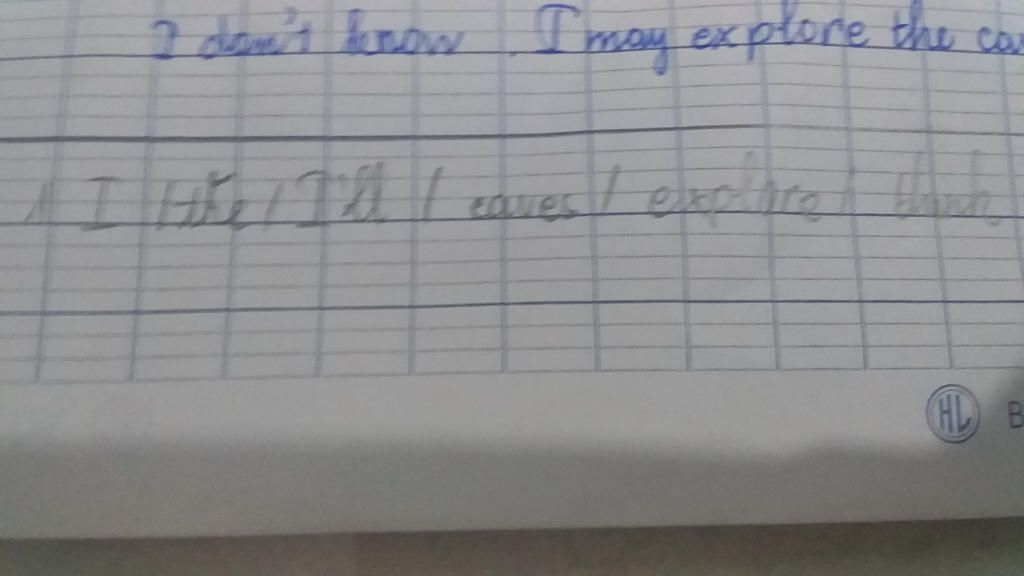 I don't know. I may explore the ca
/ I / the / I'll / caves / explore / think
HL B